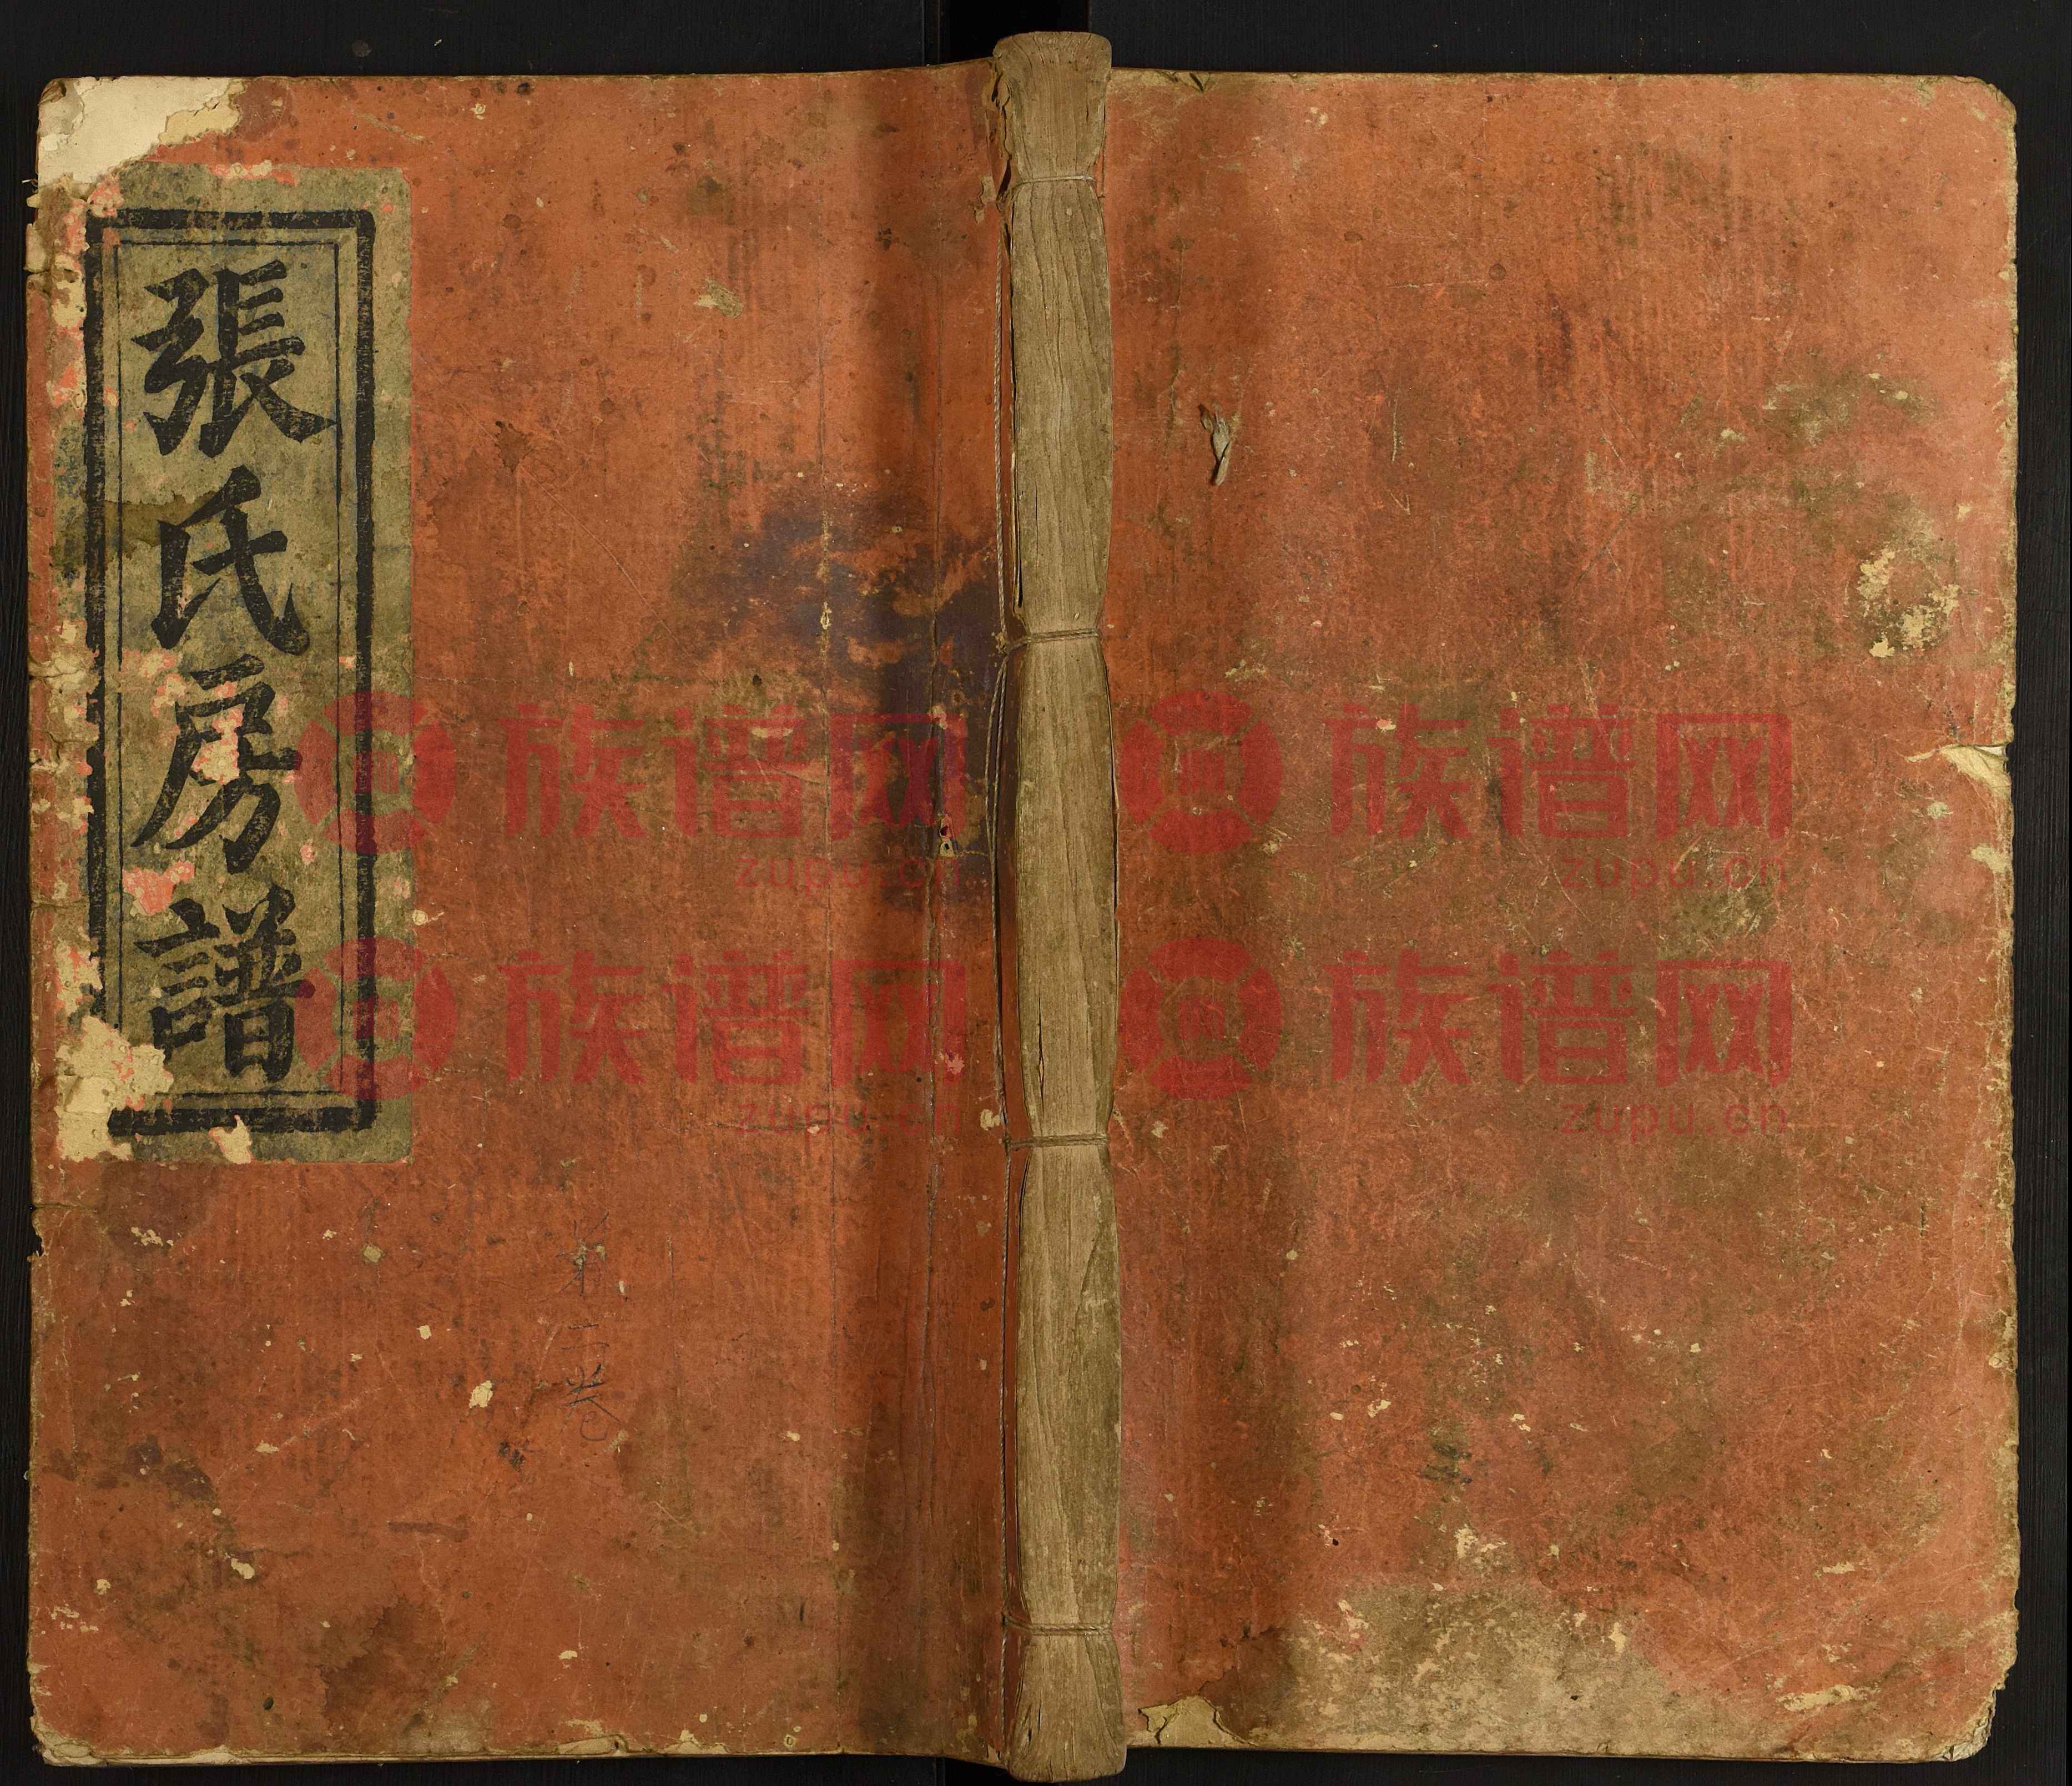 張氏房譜
第二卷
族谱网 族谱网
zupu.cn zupu.cn
族谱网 族谱网
zupu.cn zupu.cn